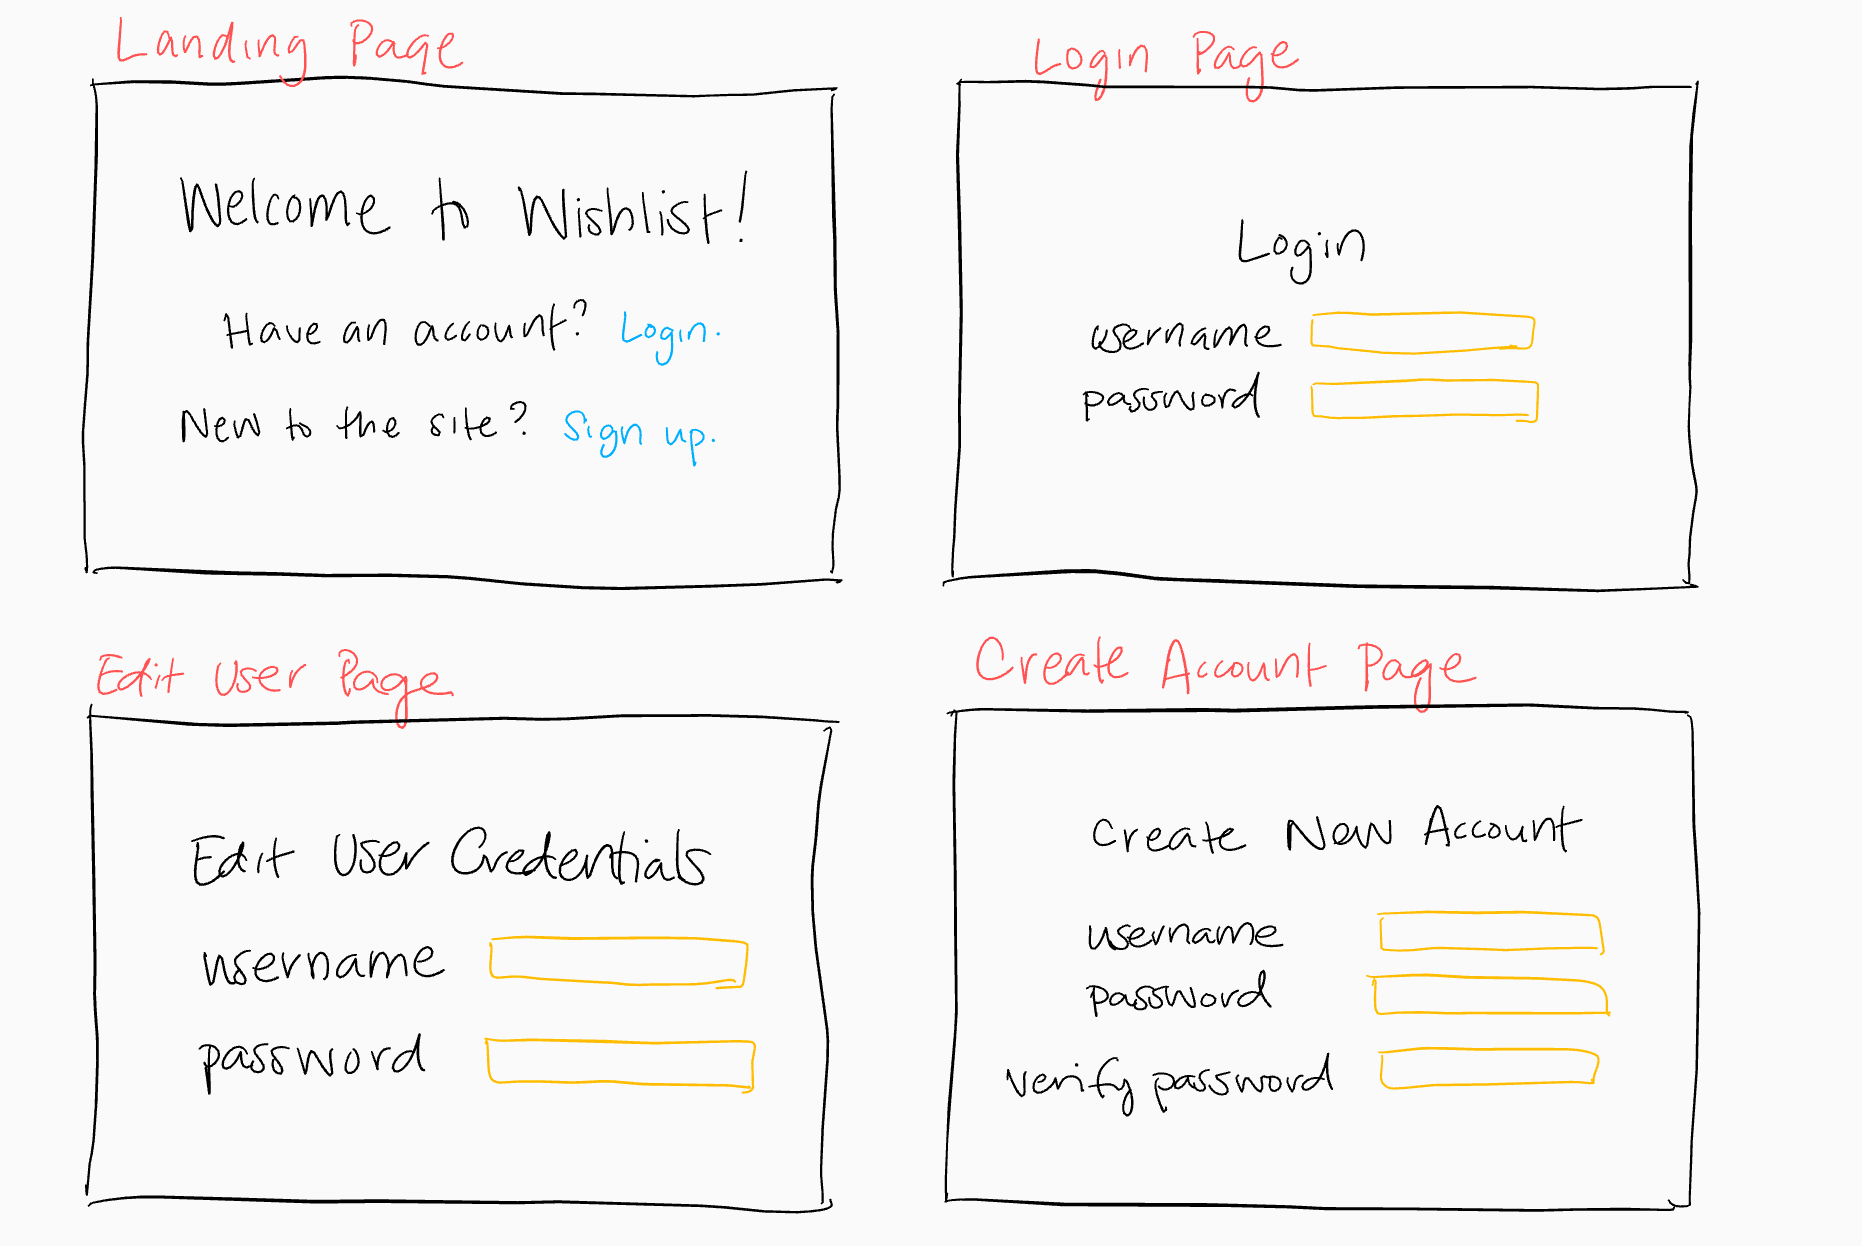 Landing Page
Welcome to Wishlist!
Have an account? Login.
New to the site? Sign up.
Login Page
Login
username
password
Edit User Page
Edit User Credentials
username
password
Create Account Page
Create New Account
username
password
verify password